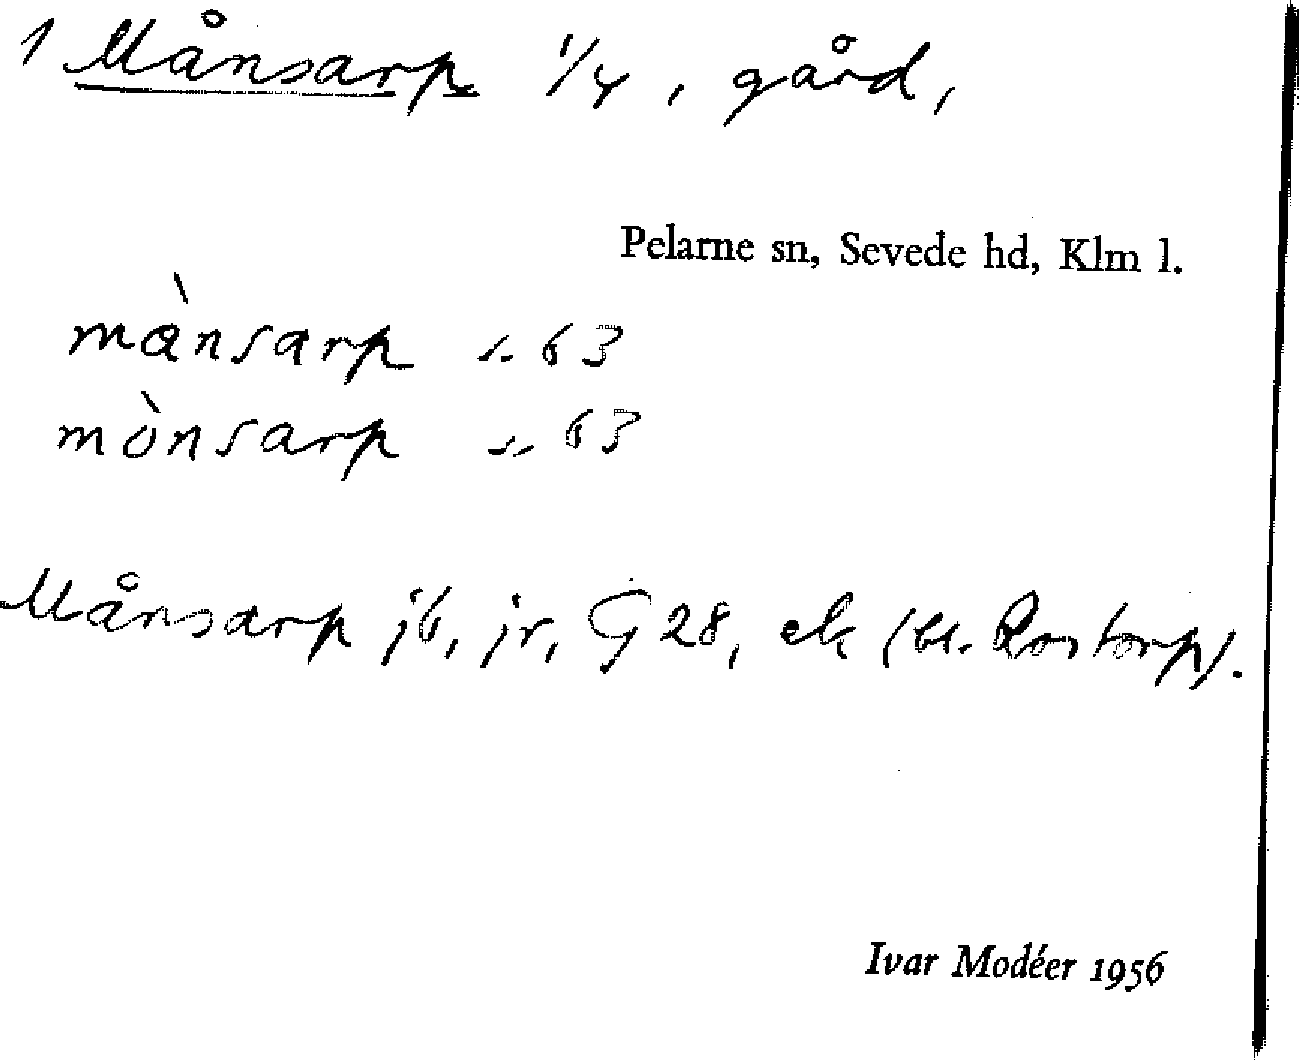 1 Månsarp 1/4, gård,
Pelarne sn, Sevede hd, Klm l.
mànsarp s. 63
mònsarp s. 63
Månsarp jb, jr, G 28, ek (bl. Rostorp).
Ivar Modéer 1956